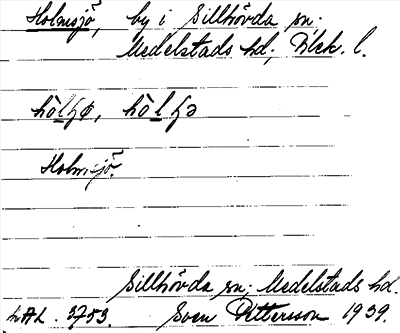 Holmsjö, by i Sillhövda sn.
Medelstads hd, Blek. l.
Holmsjö.
Sillhövda sn. Medelstads hd.
LAL. 3753. Sven Pettersson 1939.